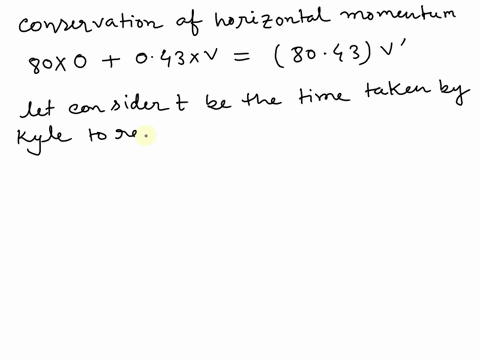 conservation of horizontal momentum
80X0 + 0.43xV = (80.43) V'
let consider t be the time taken by
Kyle to re